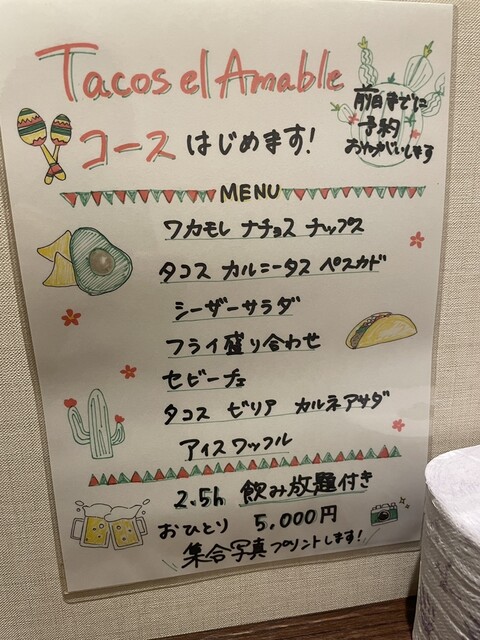 Tacos el Amable
前日までに
予約
おねがいします
コース はじめます!
MENU
ワカモレ ナチョス チップス
タコス カルニータス ペスカド
シーザーサラダ
フライ盛り合わせ
セビーチェ
タコス ビリア カルネアサダ
アイスワッフル
2.5h 飲み放題付き
おひとり 5,000円
集合写真プリントします!